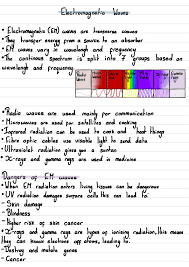 Electromagnetic Waves
• Electromagnetic (EM) waves are transverse waves
• They transfer energy from a source to an absorber
• EM waves vary in wavelength and frequency
• The continuous spectrum is split into 7 groups based on
wavelength and frequency
• Radio waves are used mainly for communication
• Microwaves are used for satellites and cooking
• Infrared radiation can be used to cook and heat things
• Fibre optic cables use visible light to send data
• Ultraviolet radiation gives you a suntan
• X-rays and gamma rays are used in medicine
Dangers of EM waves
• When EM radiation enters living tissues can be dangerous
• UV radiation damages surface cells this can lead to:
- Skin damage
- Blindness
- Higher risk of skin cancer
• X-rays and gamma rays are types of ionising radiation, this means
they can knock electrons off atoms, leading to:
- Destroy and mutate genes
- Cancer